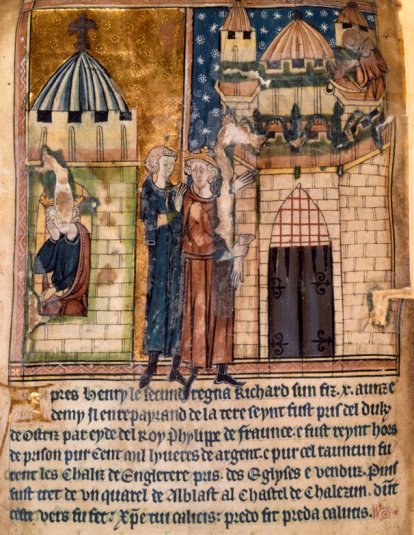 pres Henry le secund regna Richard sun fiz .x. aunz e
demy si en repayrand de la tere seynt fust pris del duk
de Ostriz par eyde del Roy Phylippe de Fraunce. e fust reynt hors
de prison pur Cent mil liveres de argent. e pur cel rauncun fu
rent les Chaliz de Engletere pris. des Eglyses e venduz. Puis
fust tret de un quarel de Alblast al Chastel de Chalezun. dunt
cette vers fu fet: xp̄e tui calicis: predo fit preda calucis.